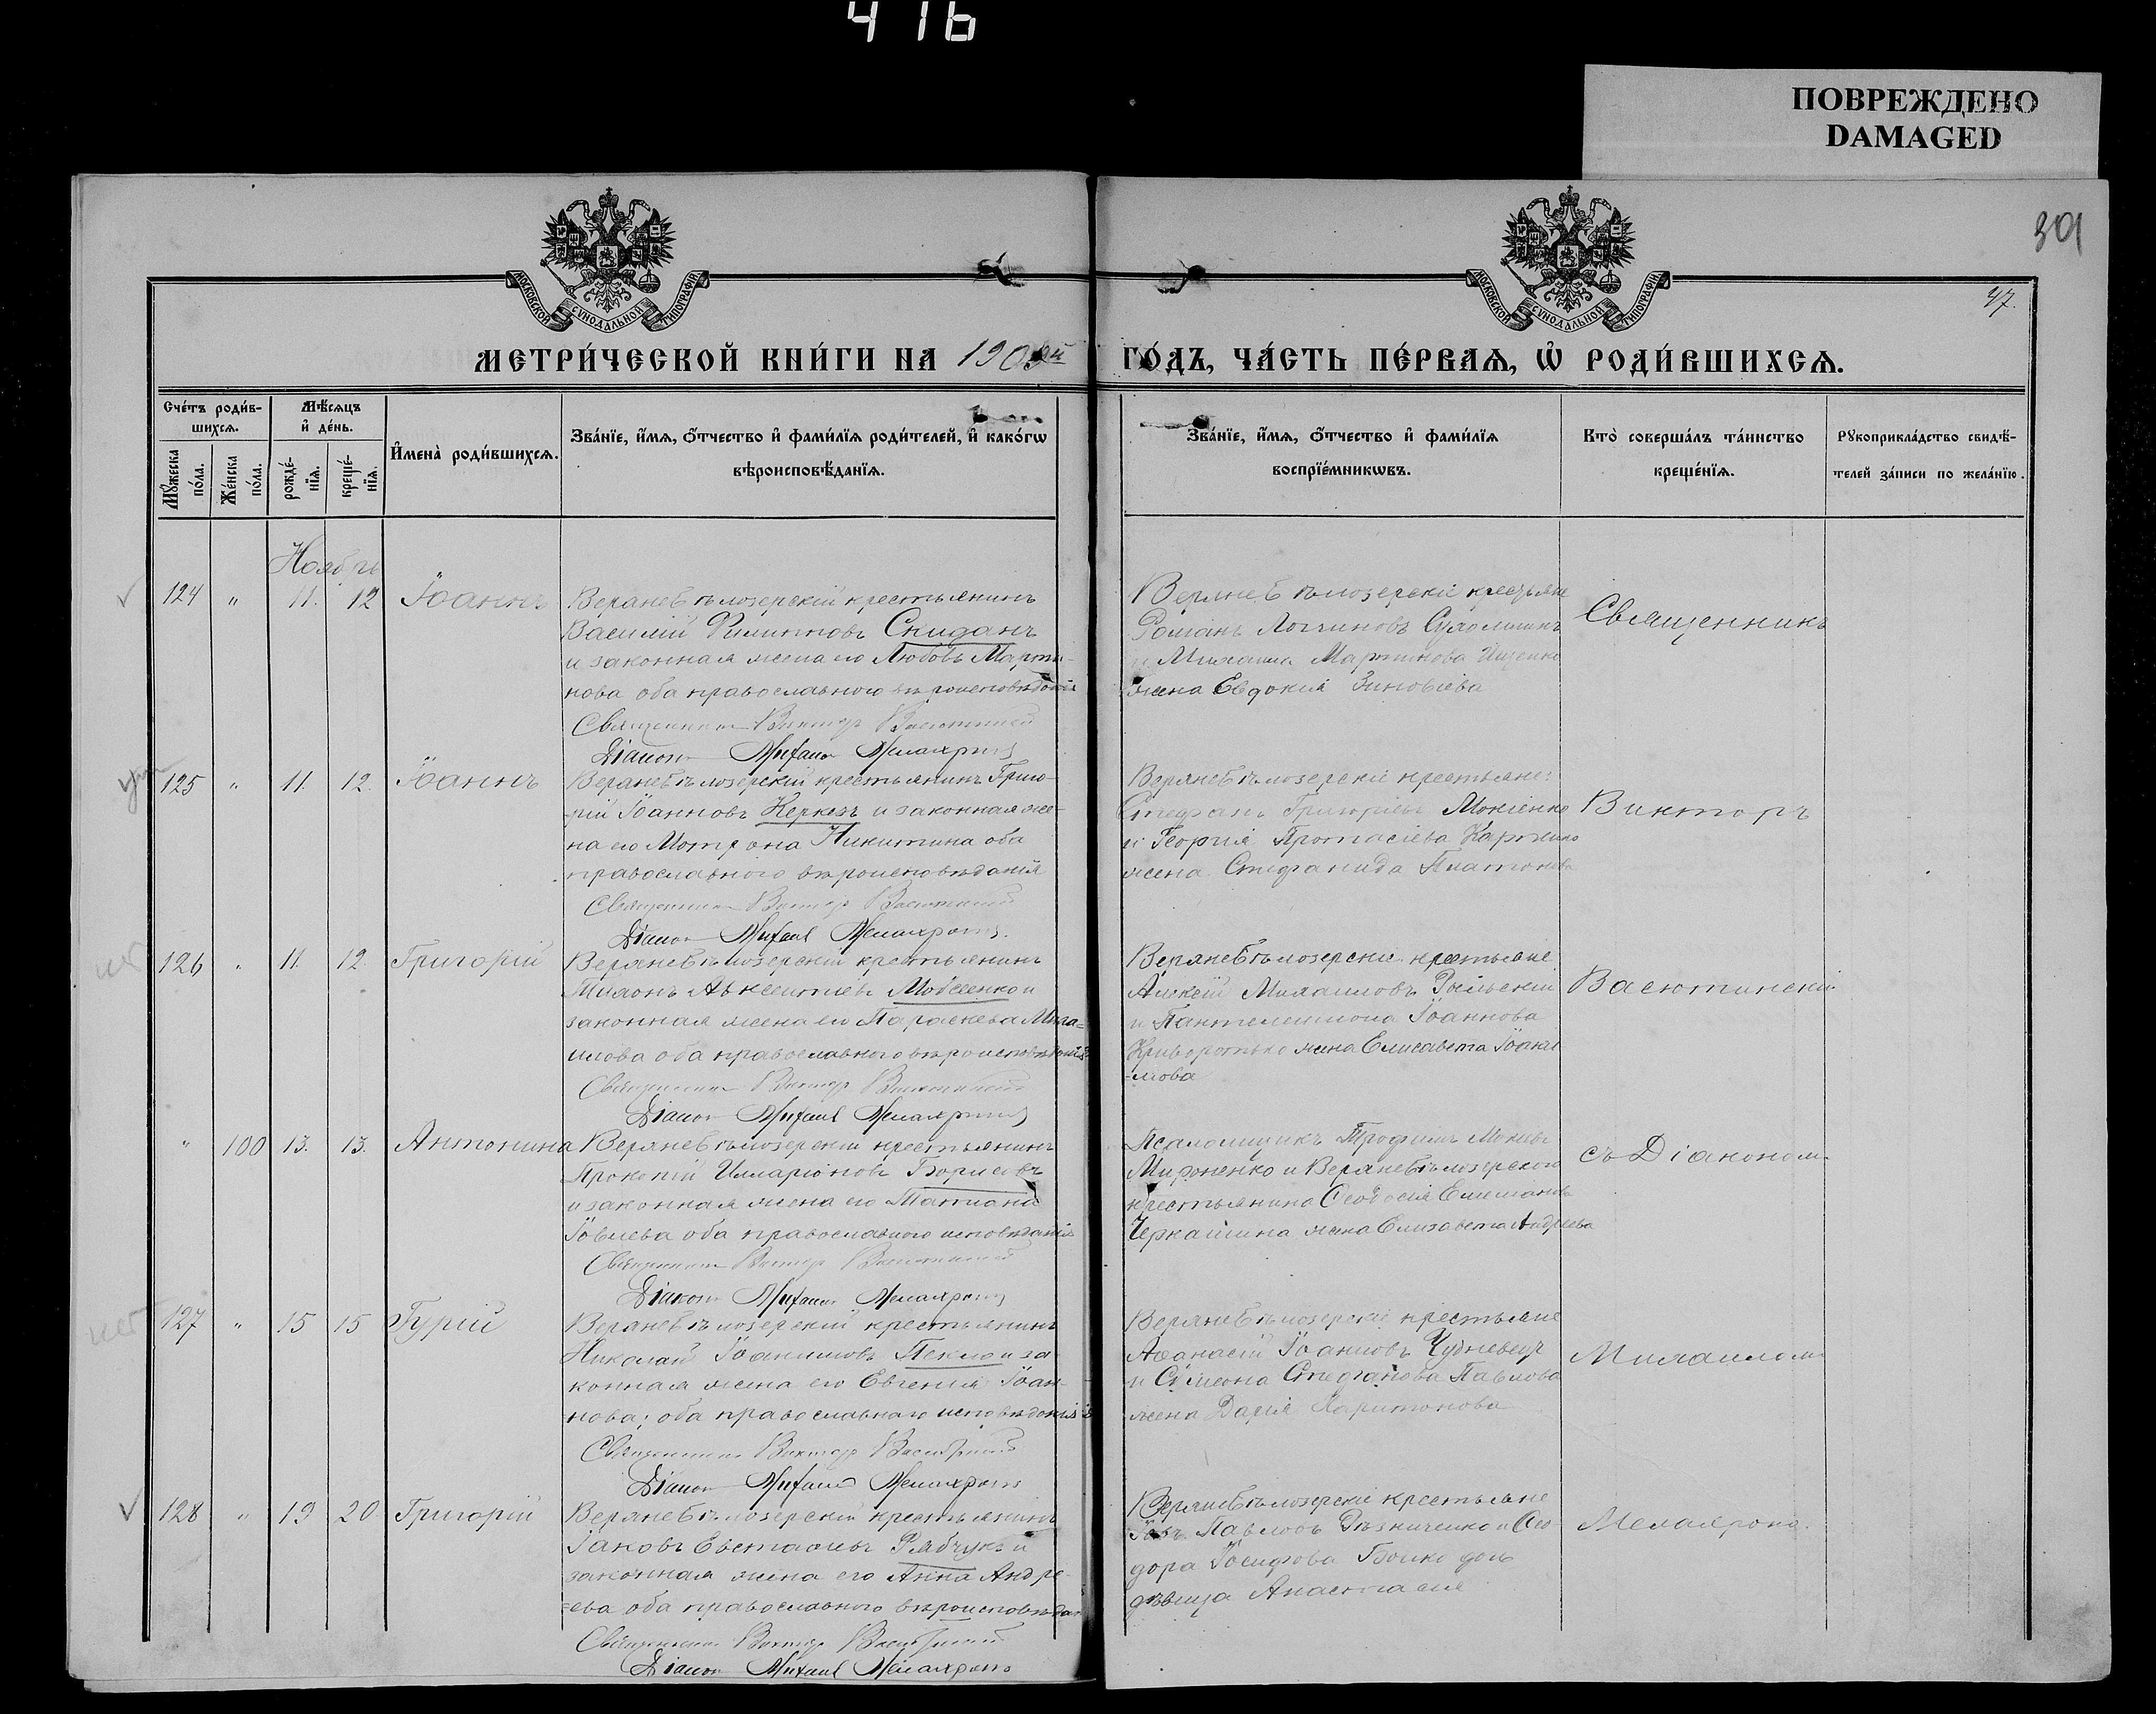 416
ПОВРЕЖДЕНО
DAMAGED
301
47.
МОСКОВСКОЙ СѴНОДАЛЬНОЙ ТИПОГРАФІИ
МОСКОВСКОЙ СѴНОДАЛЬНОЙ ТИПОГРАФІИ
МЕТРИ́ЧЕСКОЙ КНИ́ГИ НА 190 й ГО́ДЪ, ЧА́СТЬ ПЕ́РВАѦ, Ѡ҆ РОДИ́ВШИХСѦ.
Сче́тъ роди́в-
шихсѧ.
Мѣ́сѧцъ
и҆ де́нь.
И҆мена̀ роди́вшихсѧ.
Зва́нїе, и҆́мѧ, ѻ҆́тчество и҆ фамѝлїѧ роди́телей, и҆ како́гѡ
вѣроисповѣ́данїѧ.
Зва́нїе, и҆́мѧ, ѻ҆́тчество и҆ фамѝлїѧ
воспрїе́мникѡвъ.
Кто̀ соверша́лъ та́инство
креще́нїѧ.
Рꙋкоприкла́дство свидѣ́-
телей за́писи по жела́нїю.
Мꙋ́жеска
по́ла.
Же́нска
по́ла.
рожде́-
нїѧ.
креще́-
нїѧ.
Ноябрь
124 " 11. 12 Іоаннъ
Веряневѣлозерскій крестьянинъ
Василій Филипповъ Скиданъ
и законная жена его Любовь Марти-
нова оба православного вѣроисповѣданія
Священникъ Викторъ Васютинскій
Діаконъ Михаил Мелахроно
Веряневѣлозерскіе крестьяне
Романъ Логгиновъ
и Михаила Мартинова Ищенко
жена Евдокія Зиновіева
Священникъ
125 " 11. 12. Іоаннъ
Веряневѣлозерскій крестьянинъ Григо-
рій Іоанновъ Керкезъ и законная же-
на его Мотрона Никитина оба
православного вѣроисповѣданія
Священникъ Викторъ Васютинскій
Діаконъ Михаил Мелахроно
Веряневѣлозерскіе крестьяне:
Стефанъ Григоріевъ Мокіенко
и Георгія Протасіева
жена Стефанида Платонова
Викторъ
нет
126 " 11. 12. Григорій
Веряневѣлозерскій крестьянинъ
Авксентіевъ Мовсеенко и
законная жена его Параскева Миха=
илова оба православного вѣроисповѣданія
Священникъ Викторъ Васютинскій
Діаконъ Михаил Мелахроно
Веряневѣлозерскіе крестьяне
Алексій Михаиловъ Рыльскій
и Пантелеимона Іоаннова
Криворотько жена Елисавета Іоаки
-мова
Васютинскій
" 100 13. 13. Антонина
Веряневѣлозерскій крестьянинъ
Прокопій Иларіоновъ Борисовъ
и законная жена его Татіана
Іовлева оба православного исповѣданія
Священникъ Викторъ Васютинскій
Діаконъ Михаил Мелахроно
Псаломщикъ Трофимъ Мокіевъ
Мироненко и Веряневѣлозерскои
крестьянина Ѳеодосія Емиліанова
Черкашина жена Елизавета Андреева
съ Діакономъ
нет
127 " 15 15 Гурій
Веряневѣлозерскій крестьянинъ
Николай Іоакимовъ Пекло и за-
конная жена его Евгенія Іоан-
нова; оба православнаго исповѣданія
Священникъ Викторъ Васютинскій
Діаконъ Михаил Мелахроно
Веряневѣлозерскіе крестьяне
Аѳанасій Іоанновъ
и Сѵмеона Стефанова Павлова
жена Дарія Харитонова
Михаиломъ
128 " 19 20. Григорій
Веряневѣлозерскій крестьянинъ
Іаковъ Евстаѳіевъ Рябчукъ и
законная жена его Анна Андре-
-ева оба православного вѣроисповѣдан
Священникъ Викторъ Васютинскій
Діаконъ Михаил Мелахроно
Веряневѣлозерскіе крестьяне
Павловъ Рѣзниченко и Ѳео-
дора Іосифова Бойко дочь
дѣвица Анастасія
Мелахроно.